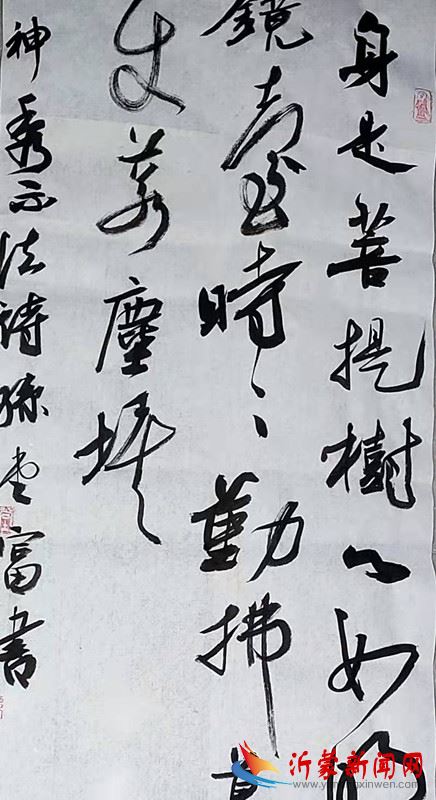 身是菩提樹心如明
鏡臺時〻勤拂莫
使惹塵埃
神秀示法詩孫富書
沂蒙新闻网
www.yimengxinwen.com